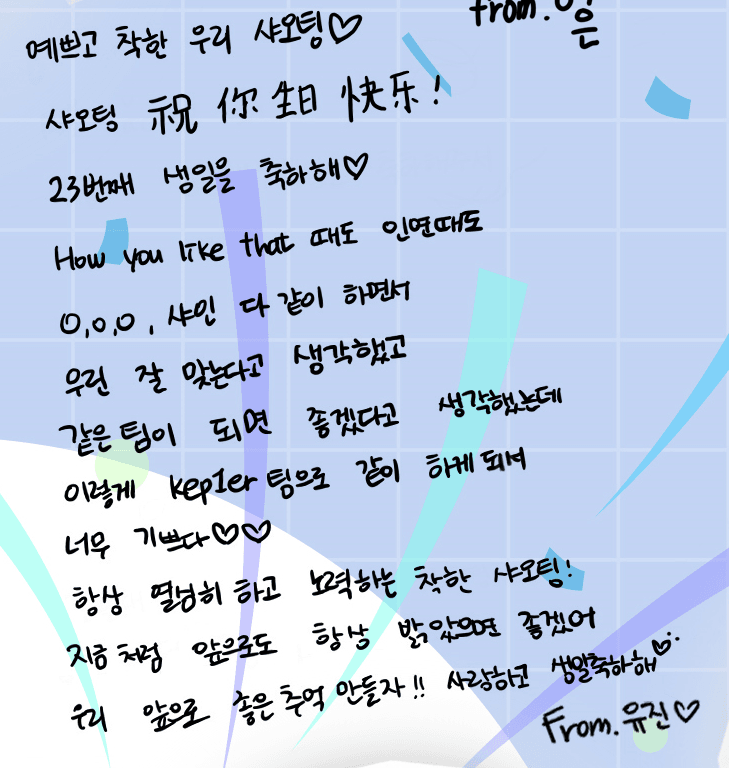 from.
은
예쁘고 착한 우리 샤오팅♡
샤오팅 祝 你 生日 快乐!
23번째 생일을 축하해♡
How you like that 때도 인연때도
O,O,O, 샤인 다 같이 하면서
우린 잘 맞는다고 생각했고
같은 팀이 되면 좋겠다고 생각했는데
이렇게 kep1er 팀으로 같이 하게 되서
너무 기쁘다♡♡
항상 열심히 하고 노력하는 착한 샤오팅!
지금 처럼 앞으로도 항상 밝았으면 좋겠어
우리 앞으로 좋은 추억 만들자!! 사랑하고 생일축하해♡
From. 유진♡